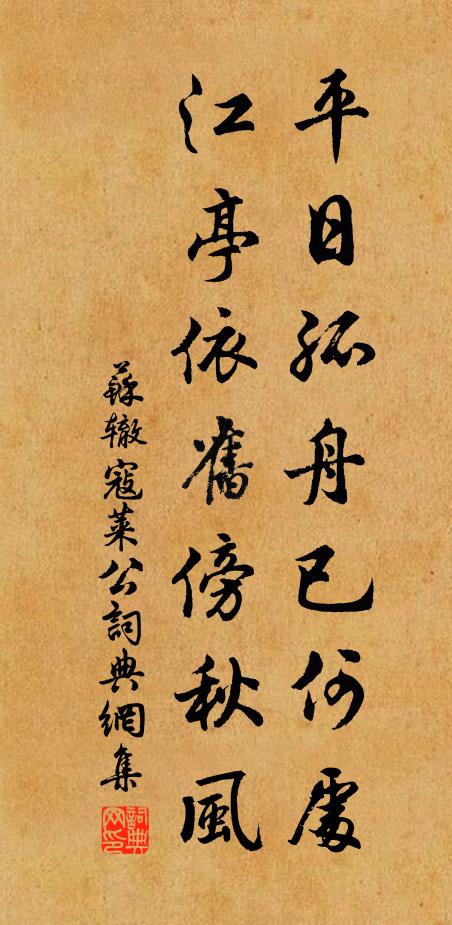 平日孤舟已何處
江亭依舊傍秋風
蘇轍寇萊公詞典網集
詞典网印